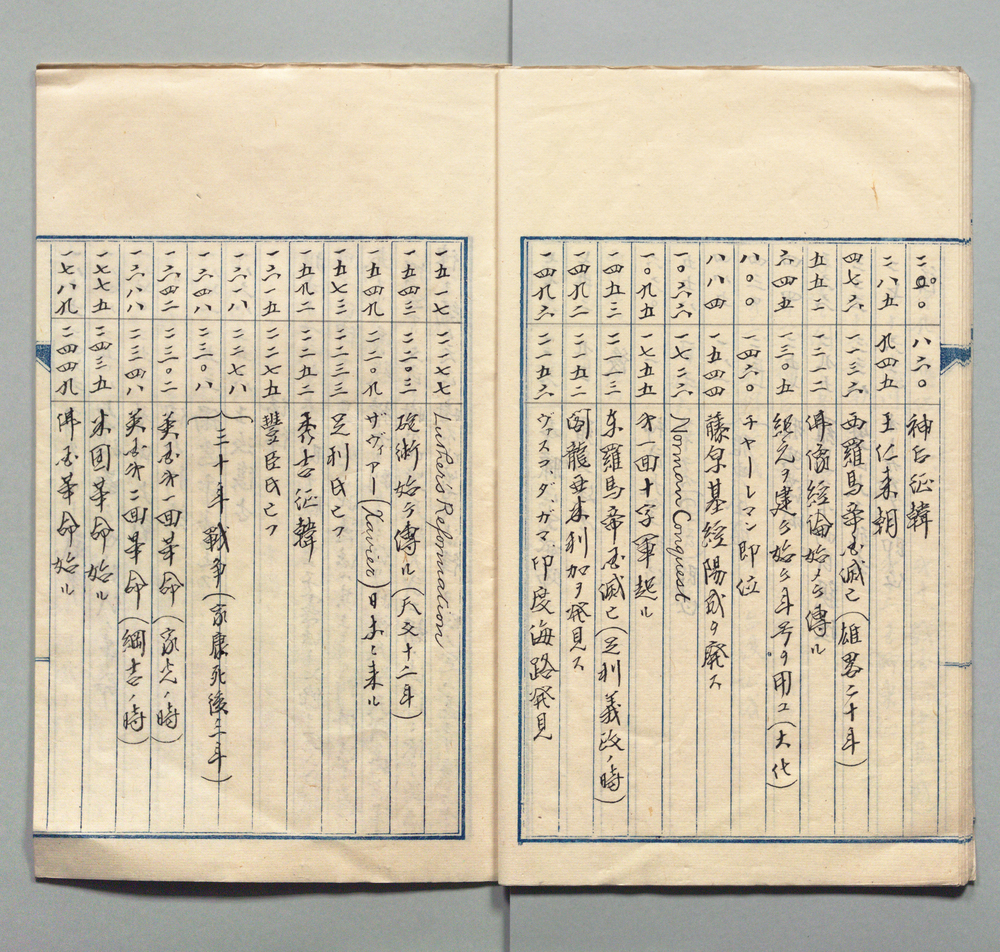 二〇〇 八六〇 神后征韓
二八五 九四五 王仁来朝
四七六 一一三六 西羅馬帝国滅亡(雄略二十年)
五五二 一二一二 佛像経論始メテ傳ル
六四五 一三〇五 紀元ヲ建テ始テ年号ヲ用ユ(大化)
八〇〇 一四六〇 チャーレマン即位
八八四 一五四四 藤原基経陽成ヲ廃ス
一〇六六 一七二六 Norman Conquest
一〇九五 一七五五 第一回十字軍起ル
一四五三 二一一三 東羅馬帝国滅亡(足利義政ノ時)
一四九二 二一五二 閣龍亜米利加ヲ発見ス
一四九六 二一五六 ヴァスコ、ダ、ガマ印度海路発見
一五一七 二一七七 Luther's Reformation
一五四三 二二〇三 砲術始テ傳ル(天文十二年)
一五四九 二二〇九 ザヴィアー(Xavier)日本ニ来ル
一五七三 二二三三 足利氏亡フ
一五九二 二二五二 秀吉征韓
一六一五 二二七五 豐臣氏亡フ
一六一八 二二七八
三十年戰争(家康死後二年)
一六四八 二三〇八
一六四二 二三〇二 英国第一回革命(家光ノ時)
一六八八 二三四八 英国第二回革命(綱吉ノ時)
一七七五 二四三五 米国革命始ル
一七八九 二四四九 佛国革命始ル